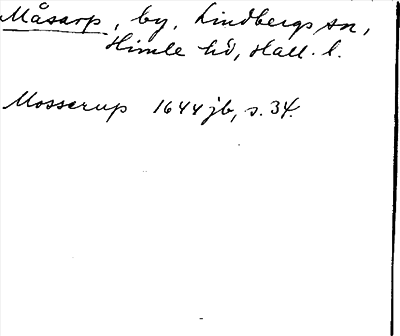 Måsarp, by, Lindbergs sn,
Himle hd, Hall. l.
Mosserup 1644 jb, s. 34.